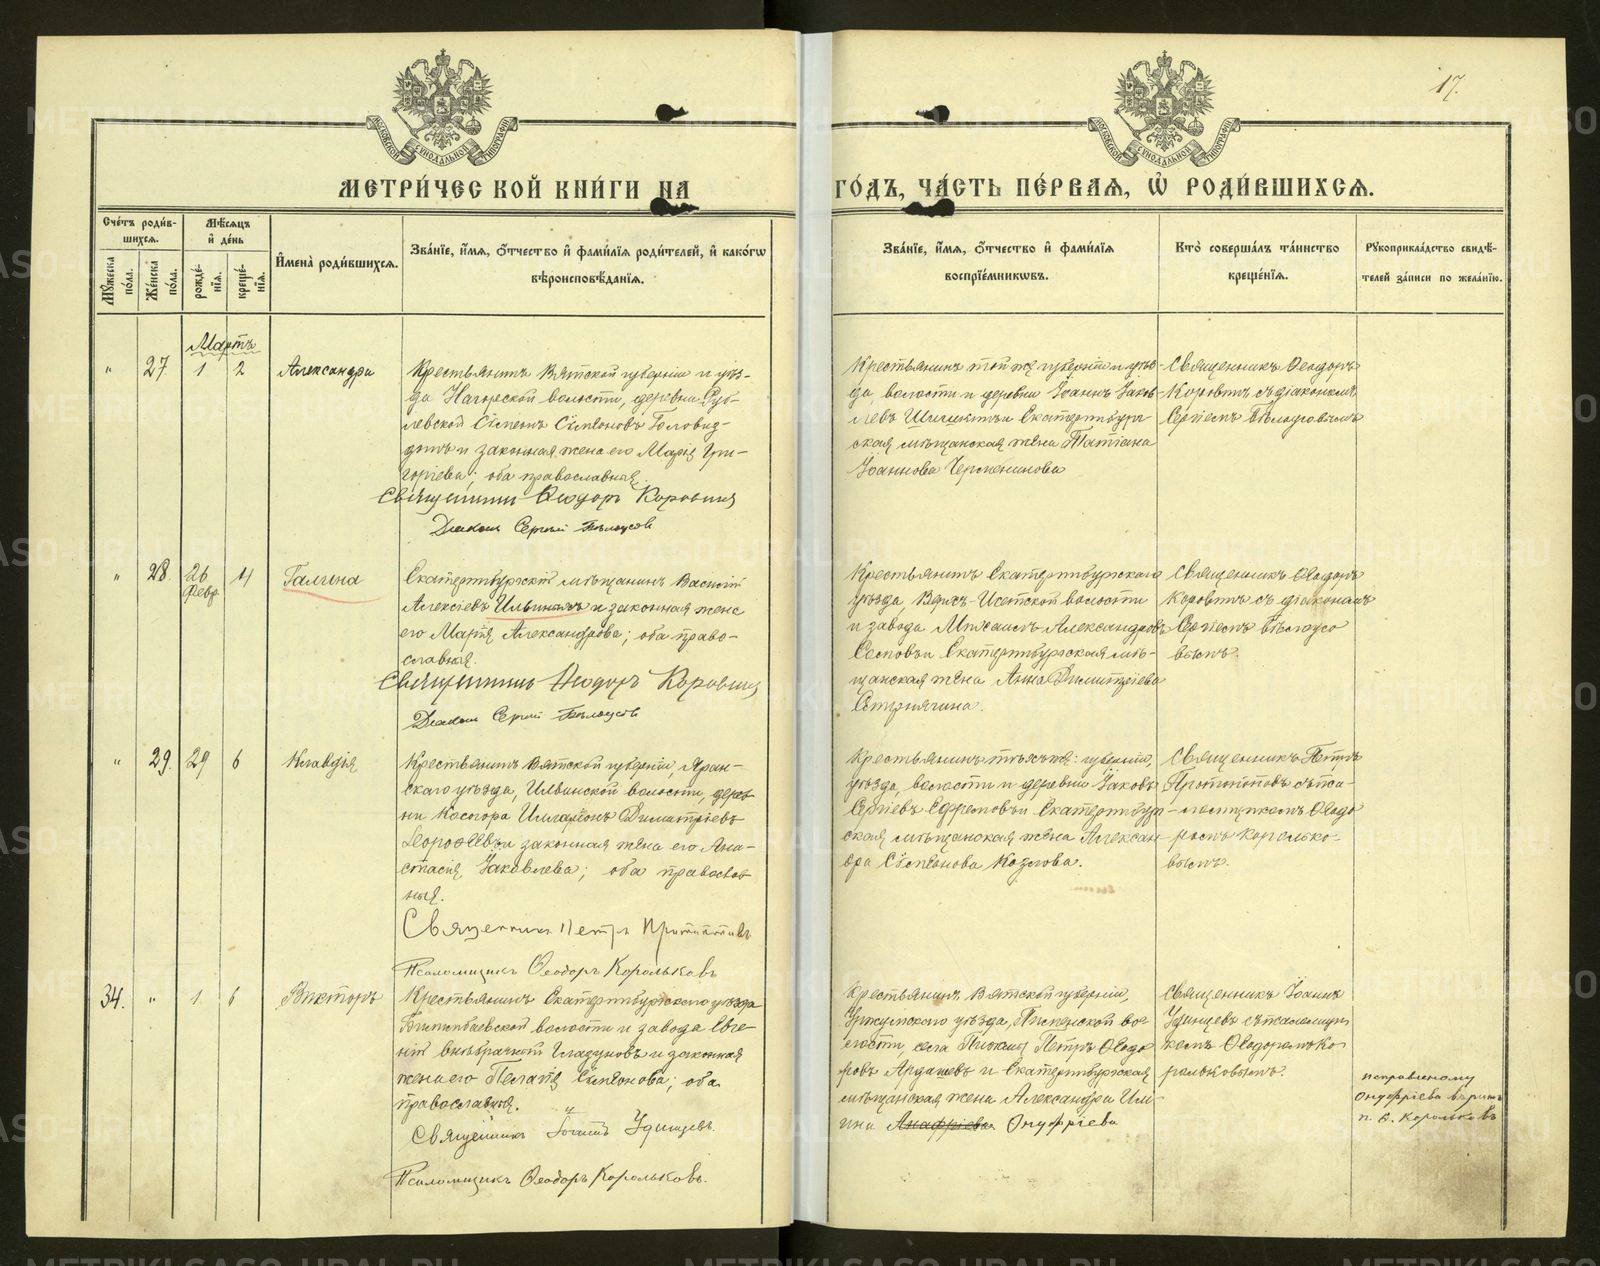 17.
МОСКОВСКОЙ СѴНОДАЛЬНОЙ ТИПОГРАФІИ
МОСКОВСКОЙ СѴНОДАЛЬНОЙ ТИПОГРАФІИ
МЕТРИ́ЧЕСКОЙ КНИ́ГИ НА ГО́ДЪ, ЧА́СТЬ ПЕ́РВАЯ, Ѡ РОДИ́ВШИХСЯ.
Сче́тъ роди́в-
шихся.
Мꙋ́жеска по́ла.
Же́нска по́ла.
Мѣ́сяцъ
и҆ де́нь
рожде́-
нїя.
креще́-
нїя.
И҆мена̀ роди́вшихся.
Зва́нїе, и҆́мя, ѻ҆́тчество и҆ фами́лїя роди́телей, и҆ како́гѡ
вѣроисповѣ́данїя.
Зва́нїе, и҆́мя, ѻ҆́тчество и҆ фами́лїя
воспрїе́мникѡвъ.
Кто̀ соверша́лъ та́инство
креще́нїя.
Рꙋкоприкла́дство свидѣ́-
телей за́писи по жела́нїю.
Мартъ
" 27 1 2 Александра
Крестьянинъ Вятской губерніи и уѣз-
да Нагорской волости, деревни
Сѷмеонъ Сѷмеоновъ
и законная жена его Марія Гри-
горіева; оба православныя.
Священникъ Ѳеодоръ Коровинъ
Діаконъ Сергій Бѣлоусовъ
Крестьянинъ той же губерніи и уѣз-
да, волости и деревни Іоаннъ Іаков-
левъ и Екатеринбург-
ская мѣщанская жена Татіана
Іоаннова
Священникъ Ѳеодоръ
Коровинъ съ діакономъ
Сергіемъ Бѣлоусовымъ
" 28. 26 Февр. 4 Галина
Екатеринбургскій мѣщанинъ Василій
Алексіевъ Ильиныхъ и законная жена
его Марія Александрова; оба право-
славныя.
Священникъ Ѳеодоръ Коровинъ
Діаконъ Сергій Бѣлоусовъ
Крестьянинъ Екатеринбургскаго
уѣзда, Верхъ-Исетской волости
и завода Михаилъ Александровъ
и Екатеринбургская мѣ-
щанская жена Анна Димитріева
Священникъ Ѳеодоръ
Коровинъ съ діакономъ
Сергіемъ Бѣлоусо-
вымъ.
" 29. 29 6 Клавдія
Крестьянинъ Вятской губерніи, Яран-
скаго уѣзда, Илвинской волости, дерев-
ни Косогора Илларіонъ Димитріевъ
Дороѳеевъ и законная жена его Ана-
стасія Іаковлева; оба православ-
ныя.
Священникъ Петръ Протопоповъ
Псаломщикъ Ѳеодоръ Корольковъ
Крестьянинъ тѣхъ же: губерніи,
уѣзда, волости и деревни Іаковъ
Сергіевъ Ефремовъ и Екатеринбург-
ская мѣщанская жена Алексан-
дра Сѷмеонова Козлова.
Священникъ Петръ
Протопоповъ съ пса-
ломщикомъ Ѳеодо-
ромъ Королько-
вымъ.
34. " 1 6 Викторъ
Крестьянинъ Екатеринбургскаго уѣзда
Билимбаевской волости и завода Евге-
ній внѣбрачный Гладуновъ и законная
жена его Пелагія Сѷмеонова; оба
православныя.
Священникъ Іоаннъ Удинцевъ.
Псаломщикъ Ѳеодоръ Корольковъ.
Крестьянинъ Вятской губерніи,
Уржумскаго уѣзда, во-
лости, села Петръ Ѳеодо-
ровъ Ардашевъ и Екатеринбургская
мѣщанская жена Александра Иль-
ина Анафріева Онуфріева
Священникъ Іоаннъ
Удинцевъ съ псаломщи-
комъ Ѳеодоромъ Ко-
рольковымъ.
исправленому
Онуфріева вѣрить
п. Ѳ. Корольковъ
METRIKI.GASO-URAL.RU